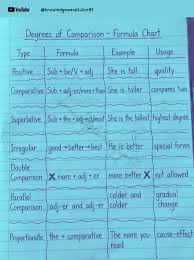 YouTube @knowledgewavetutor01
Degrees of Comparison - Formula Chart
Type Formula Example Usage
Positive Sub + be/V + adj She is tall. quality
Comparative Sub + adj+er/more+than She is taller compares two
Superlative Sub + the + adj+est/most She is the tallest highest degree
Irregular good → better → best He is better special forms
Double
Comparison ✗ more + adj + er more better ✗ not allowed
Parallel
Comparison adj-er and adj-er colder and
colder gradual
change
Proportionate the + comparative The more you
read cause-effect